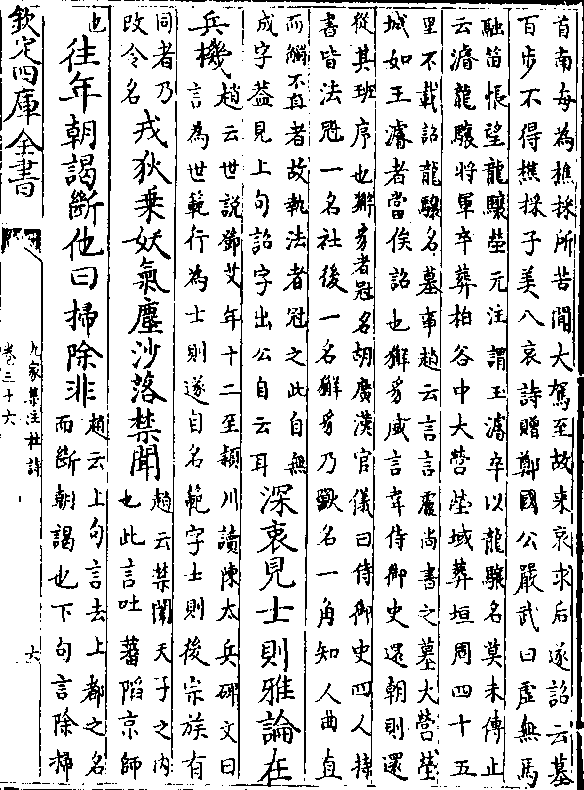 首南每為樵採所苦聞大駕至故来哀求后遂詔云墓
百步不得樵採子美八哀詩贈鄭國公嚴武曰虛無馬
融笛悵望龍驤塋元注謂王濬卒以龍驤名莫未傳止
云濬龍驤將軍卒葬柏谷中大營塋域葬垣周四十五
里不載詔龍驤名墓事趙云言言震尚書之墓大營塋
城如王濬者當俟詔也獬豸威言韋侍御史還朝則還
從其班序也獬豸者冠名胡廣漢官儀曰侍御史四人持
書皆法冠一名柱後一名獬豸乃獸名一角知人曲直
而觸不直者故執法者冠之此自無
成字蓋見上句詔字出公自云耳
深衷見士則雅論在
兵機
趙云世説鄧艾年十二至潁川讀陳太丘碑文曰
言為世範行為士則遂自名範字士則後宗族有
同者乃
改令名
戎狄乗妖氣塵沙落禁闈
趙云禁闈天子之内
也此言吐蕃陷京師
也
往年朝謁斷他日掃除非
趙云上句言去上都之名
而斷朝謁也下句言除掃
欽定四庫全書
九家集注杜詩
卷三十六
六